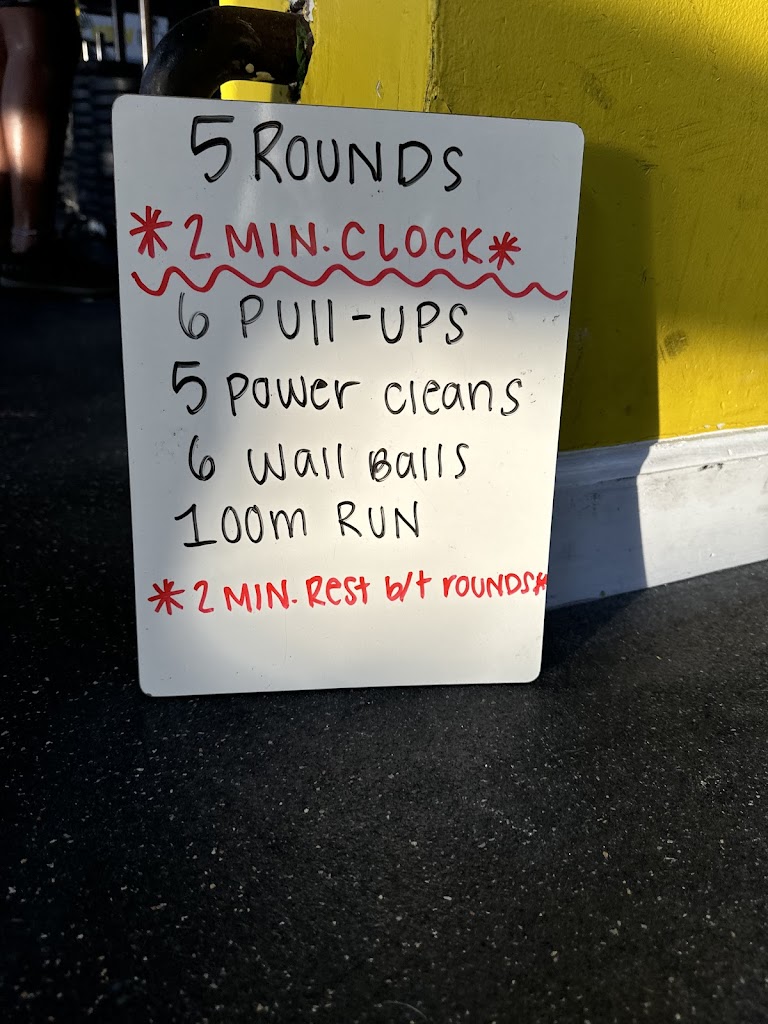 5 ROUNDS
*2 MIN. CLOCK*
6 PUll-UPS
5 Power cleans
6 Wall Balls
100m RUN
*2 MIN. Rest b/t rounds*